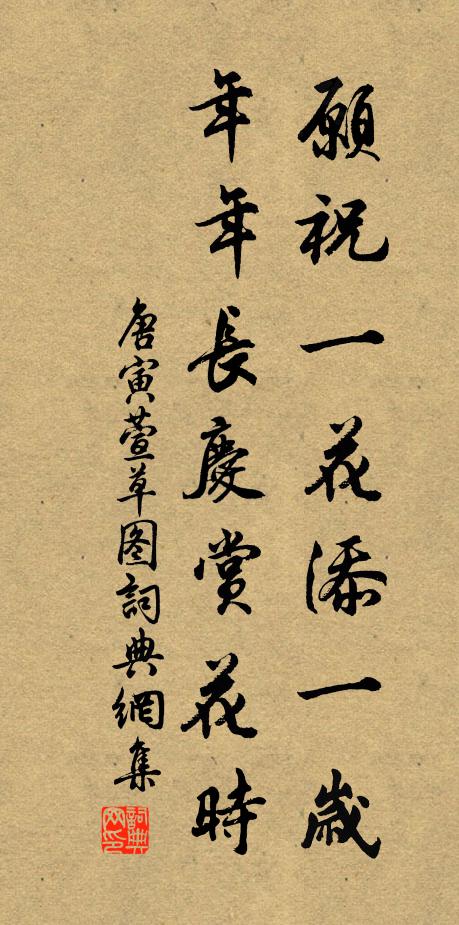 願祝一花添一歲
年年長慶賞花時
唐寅萱草图詞典網集
詞典网印